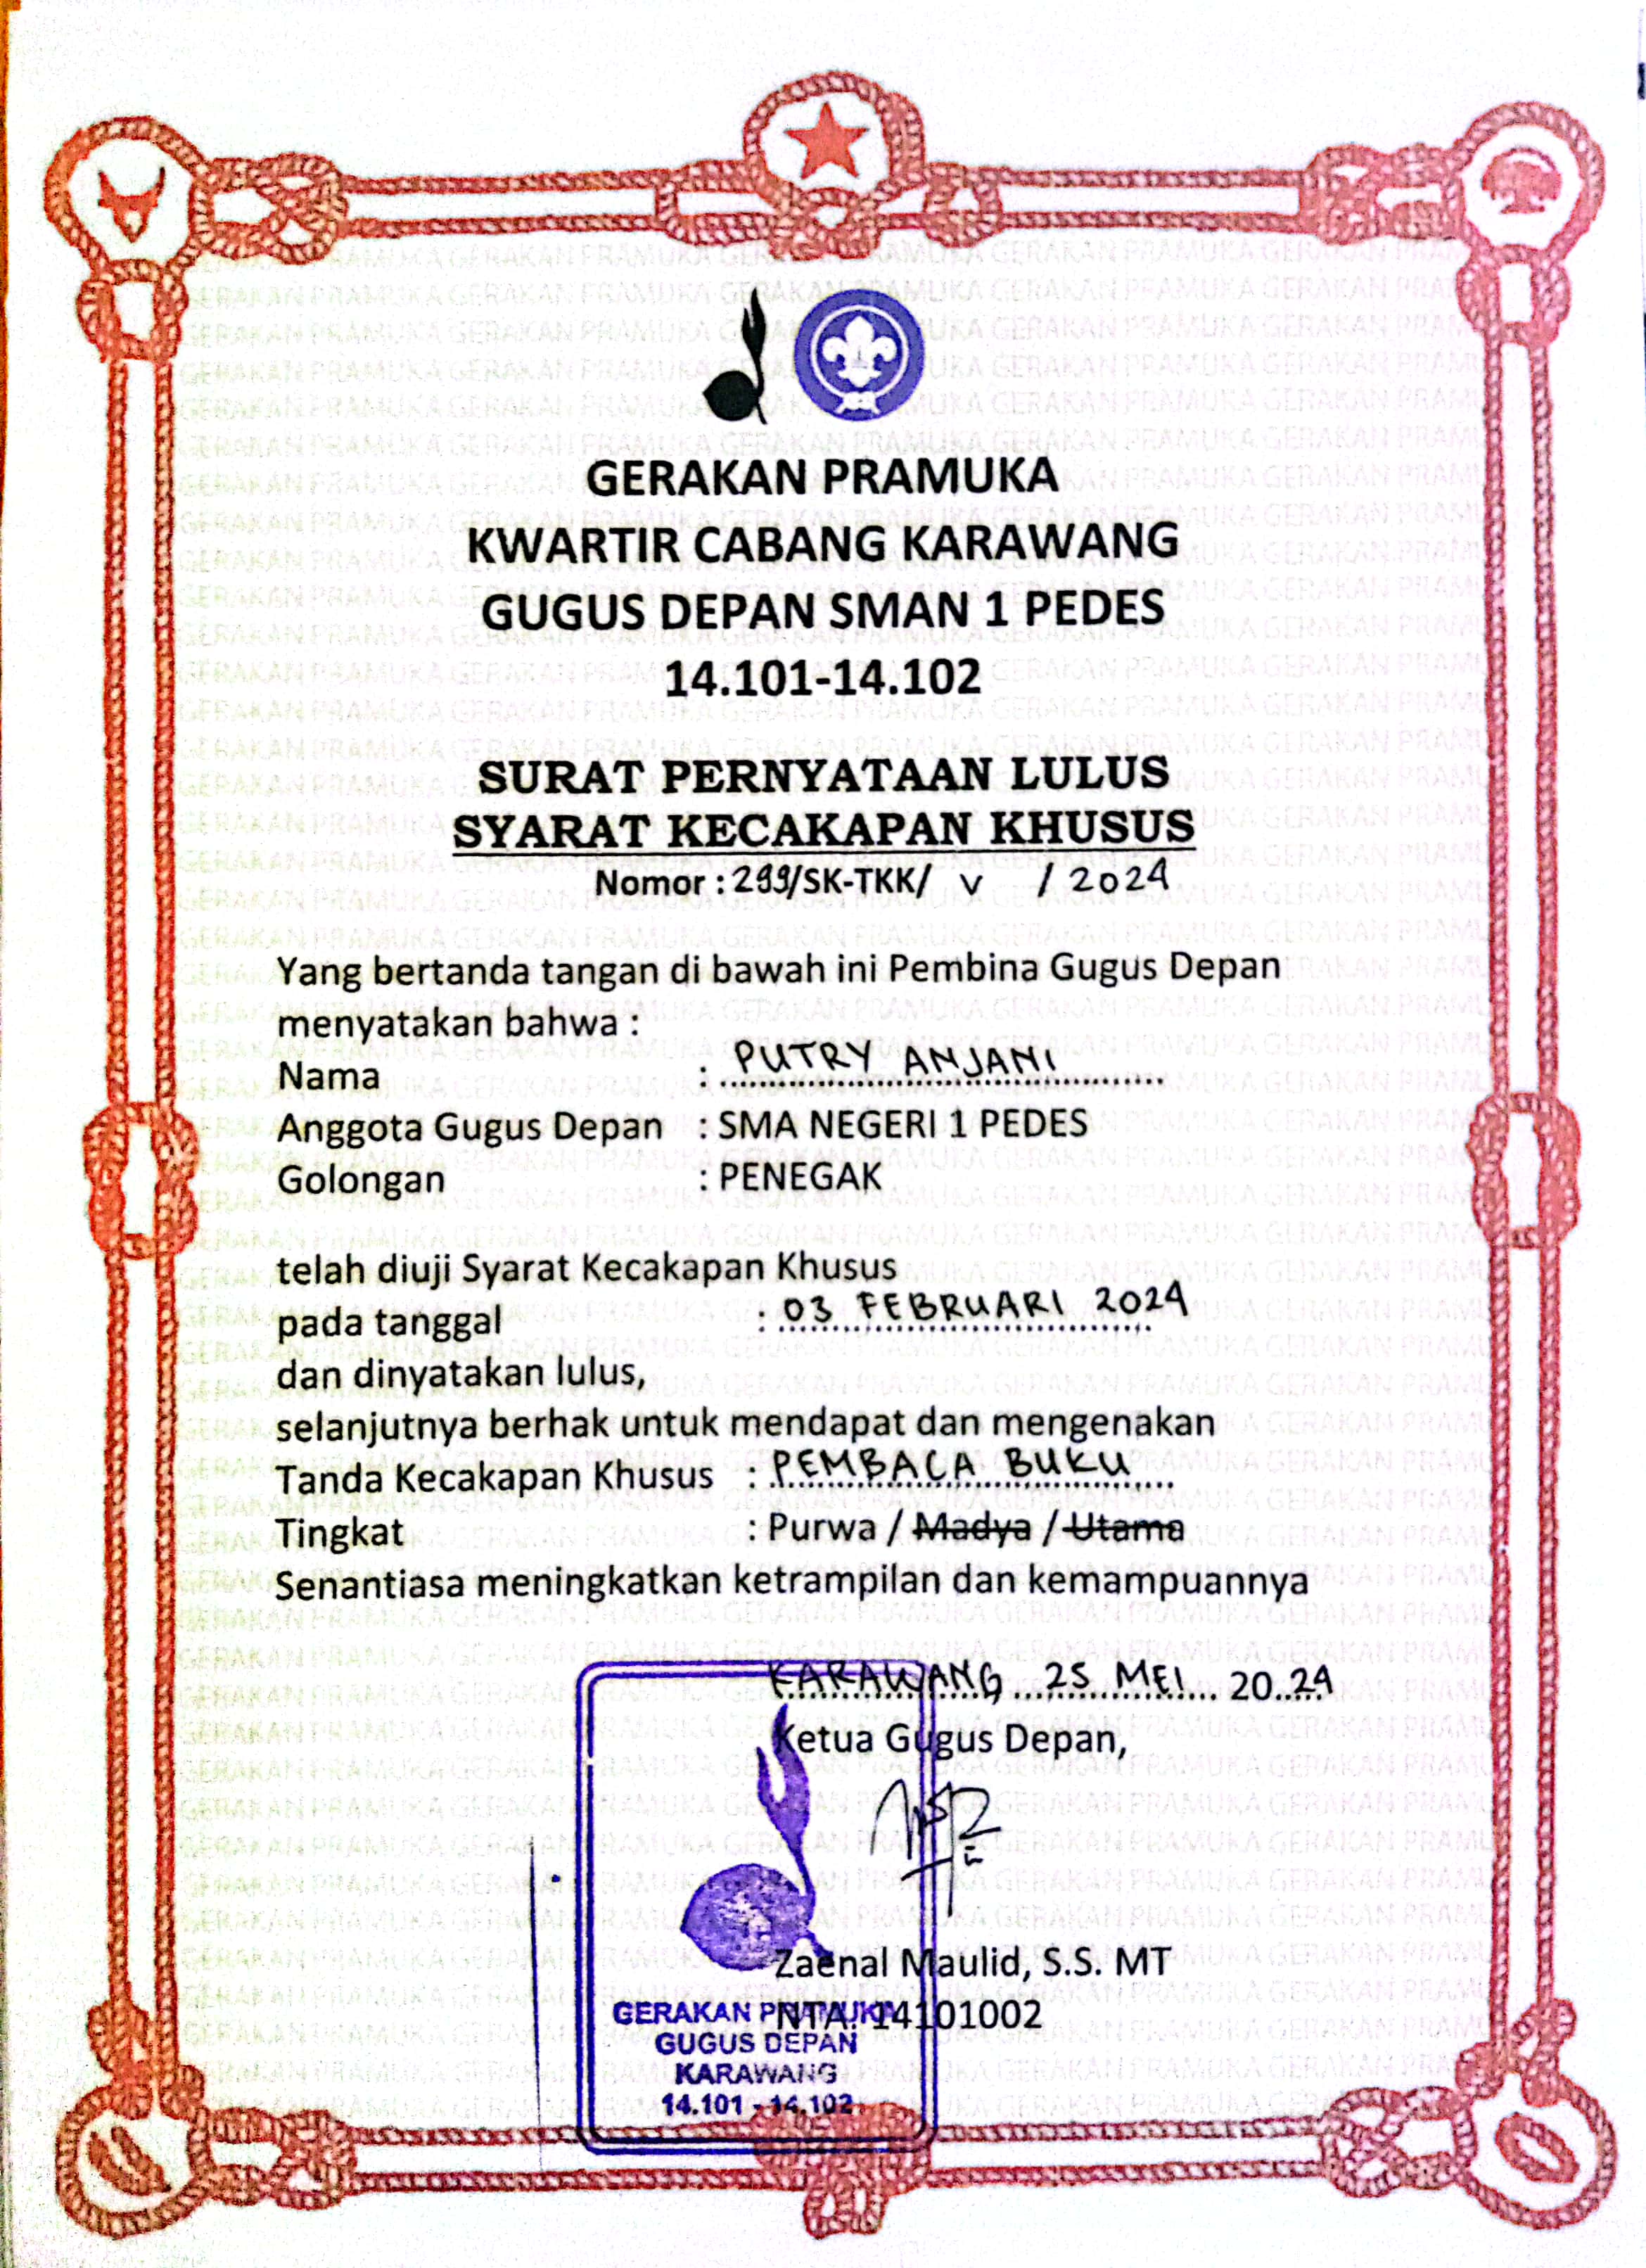 GERAKAN PRAMUKA
KWARTIR CABANG KARAWANG
GUGUS DEPAN SMAN 1 PEDES
14.101-14.102
SURAT PERNYATAAN LULUS
SYARAT KECAKAPAN KHUSUS
Nomor : 299/SK-TKK/ V / 2024
Yang bertanda tangan di bawah ini Pembina Gugus Depan
menyatakan bahwa :
Nama : PUTRY ANJANI
Anggota Gugus Depan : SMA NEGERI 1 PEDES
Golongan : PENEGAK
telah diuji Syarat Kecakapan Khusus
pada tanggal : 03 FEBRUARI 2024
dan dinyatakan lulus,
selanjutnya berhak untuk mendapat dan mengenakan
Tanda Kecakapan Khusus : PEMBACA BUKU
Tingkat : Purwa / Madya / Utama
Senantiasa meningkatkan ketrampilan dan kemampuannya
KARAWANG, 25 MEI 2024
Ketua Gugus Depan,
Zaenal Maulid, S.S. MT
NTA. 14101002
GERAKAN PRAMUKA
GUGUS DEPAN
KARAWANG
14.101 - 14.102